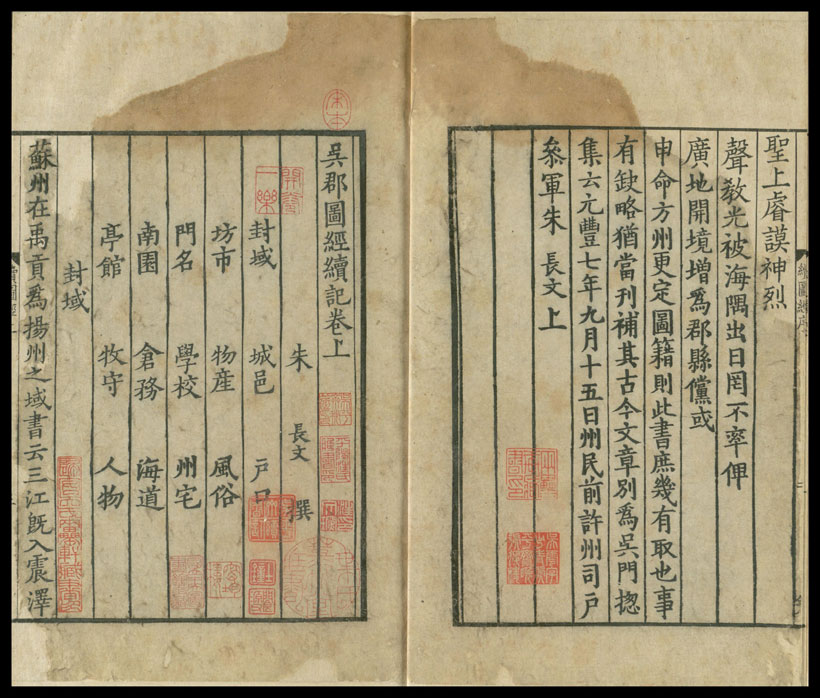 聖上睿謨神烈
聲教光被海隅出日罔不率俾
廣地開境增爲郡縣儻或
申命方州更定圖籍則此書庶幾有取也事
有缺略猶當刊補其古今文章別爲吳門揔
集云元豐七年九月十五日州民前許州司戶
叅軍朱 長文 上
吳郡圖經續記卷上
朱 長文 撰
封域 城邑 戶口
坊市 物産 風俗
門名 學校 州宅
南園 倉務 海道
亭館 牧守 人物
封域
蘇州在禹貢爲揚州之域書云三江旣入震澤
宋本